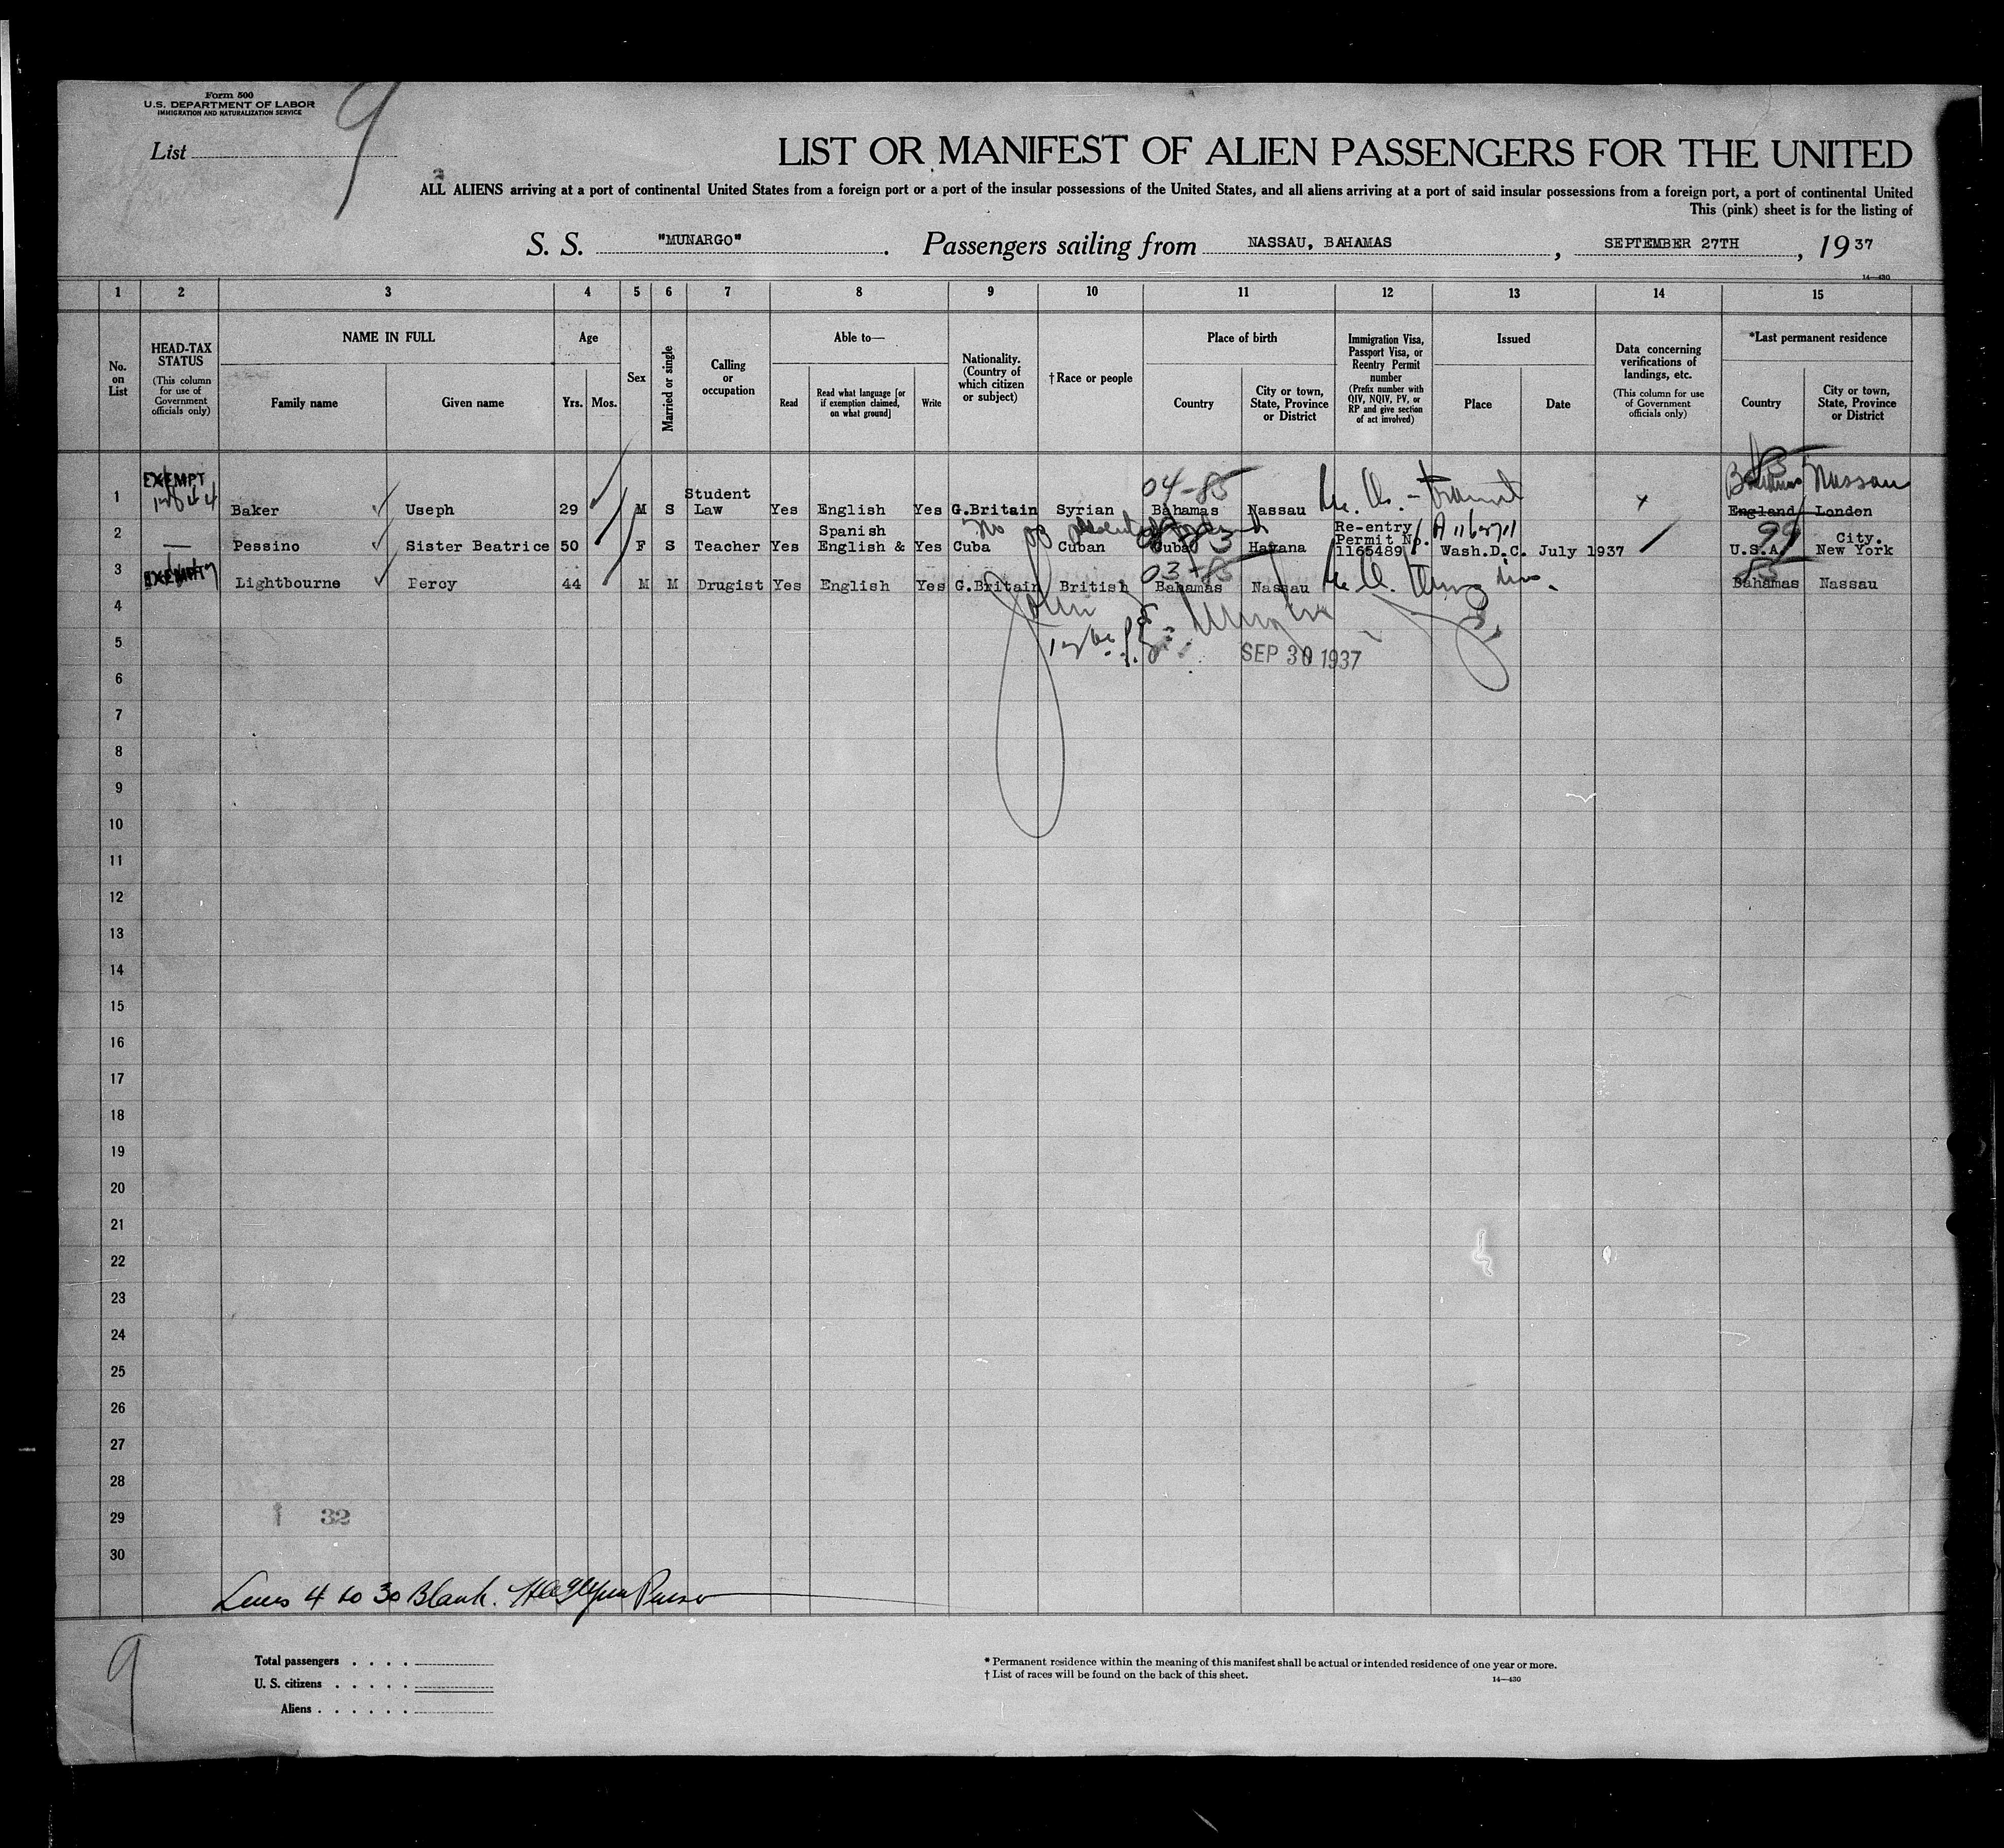 Form 500
U.S. DEPARTMENT OF LABOR
IMMIGRATION AND NATURALIZATION SERVICE
9
List
LIST OR MANIFEST OF ALIEN PASSENGERS FOR THE UNITED
ALL ALIENS arriving at a port of continental United States from a foreign port or a port of the insular possessions of the United States, and all aliens arriving at a port of said insular possessions from a foreign port, a port of continental United
This (pink) sheet is for the listing of
S. S. "MUNARGO". Passengers sailing from NASSAU, BAHAMAS, SEPTEMBER 27TH, 1937
14—430
1 2 3 4 5 6 7 8 9 10 11 12 13 14 15
No. on List
HEAD-TAX STATUS (This column for use of Government officials only)
NAME IN FULL
Family name Given name
Age
Yrs. Mos.
Sex
Married or single
Calling or occupation
Able to—
Read Read what language [or if exemption claimed, on what ground] Write
Nationality. (Country of which citizen or subject)
†Race or people
Place of birth
Country City or town, State, Province or District
Immigration Visa, Passport Visa, or Reentry Permit number (Prefix number with QIV, NQIV, PV, or RP and give section of act involved)
Issued
Place Date
Data concerning verifications of landings, etc. (This column for use of Government officials only)
*Last permanent residence
Country City or town, State, Province or District
EXEMPT 04-85 transit Bahamas Nassau
1 Baker Useph 29 M S Student Law Yes English Yes G.Britain Syrian Bahamas Nassau England London
No
2 Pessino Sister Beatrice 50 F S Teacher Yes Spanish English & Yes Cuba Cuban Cuba Havana Re-entry Permit No. 1165489 Wash.D.C. July 1937 99 U.S.A. New York City.
EXEMPT 03-85 85
3 Lightbourne Percy 44 M M Drugist Yes English Yes G.Britain British Bahamas Nassau Bahamas Nassau
4
5
SEP 30 1937
6
7
8
9
10
11
12
13
14
15
16
17
18
19
20
21
22
23
24
25
26
27
28
29 32
30
Lines 4 to 30 Blank. Purser
9
Total passengers . . . .
U. S. citizens . . . . .
Aliens . . . . . .
* Permanent residence within the meaning of this manifest shall be actual or intended residence of one year or more.
† List of races will be found on the back of this sheet.
14—430